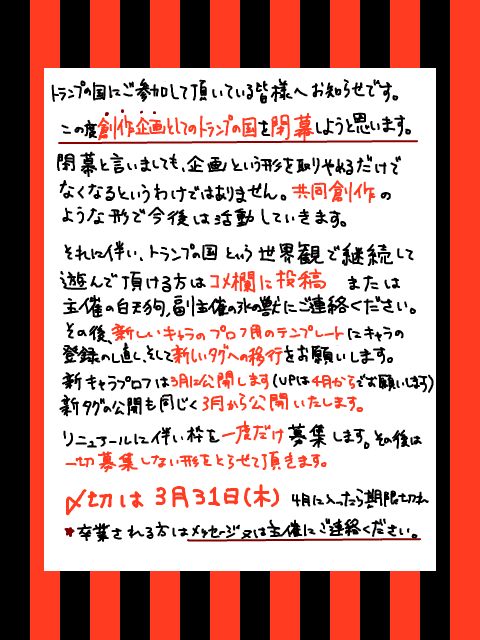 トランプの国にご参加して頂いている皆様へお知らせです。
この度創作企画としてのトランプの国を閉幕しようと思います。
閉幕と言いましても、企画という形を取りやめるだけで
なくなるというわけではありません。共同創作の
ような形で今後は活動していきます。
それに伴い、トランプの国という世界観で継続して
遊んで頂ける方はコメ欄に投稿 または
主催の白天狗,副主催の氷の獣にご連絡ください。
その後、新しいキャラのプロフ用のテンプレートにキャラの
登録のし直し、そして新しいタグへの移行をお願いします。
新キャラプロフは3月に公開します(UPは4月からでお願いします)
新タグの公開も同じく3月から公開いたします。
リニューアールに伴い枠を一度だけ募集します。その後は
一切募集しない形をとらせて頂きます。
〆切は3月31日(木) 4月に入ったら期限切れ
*卒業される方はメッセージ又は主催にご連絡ください。